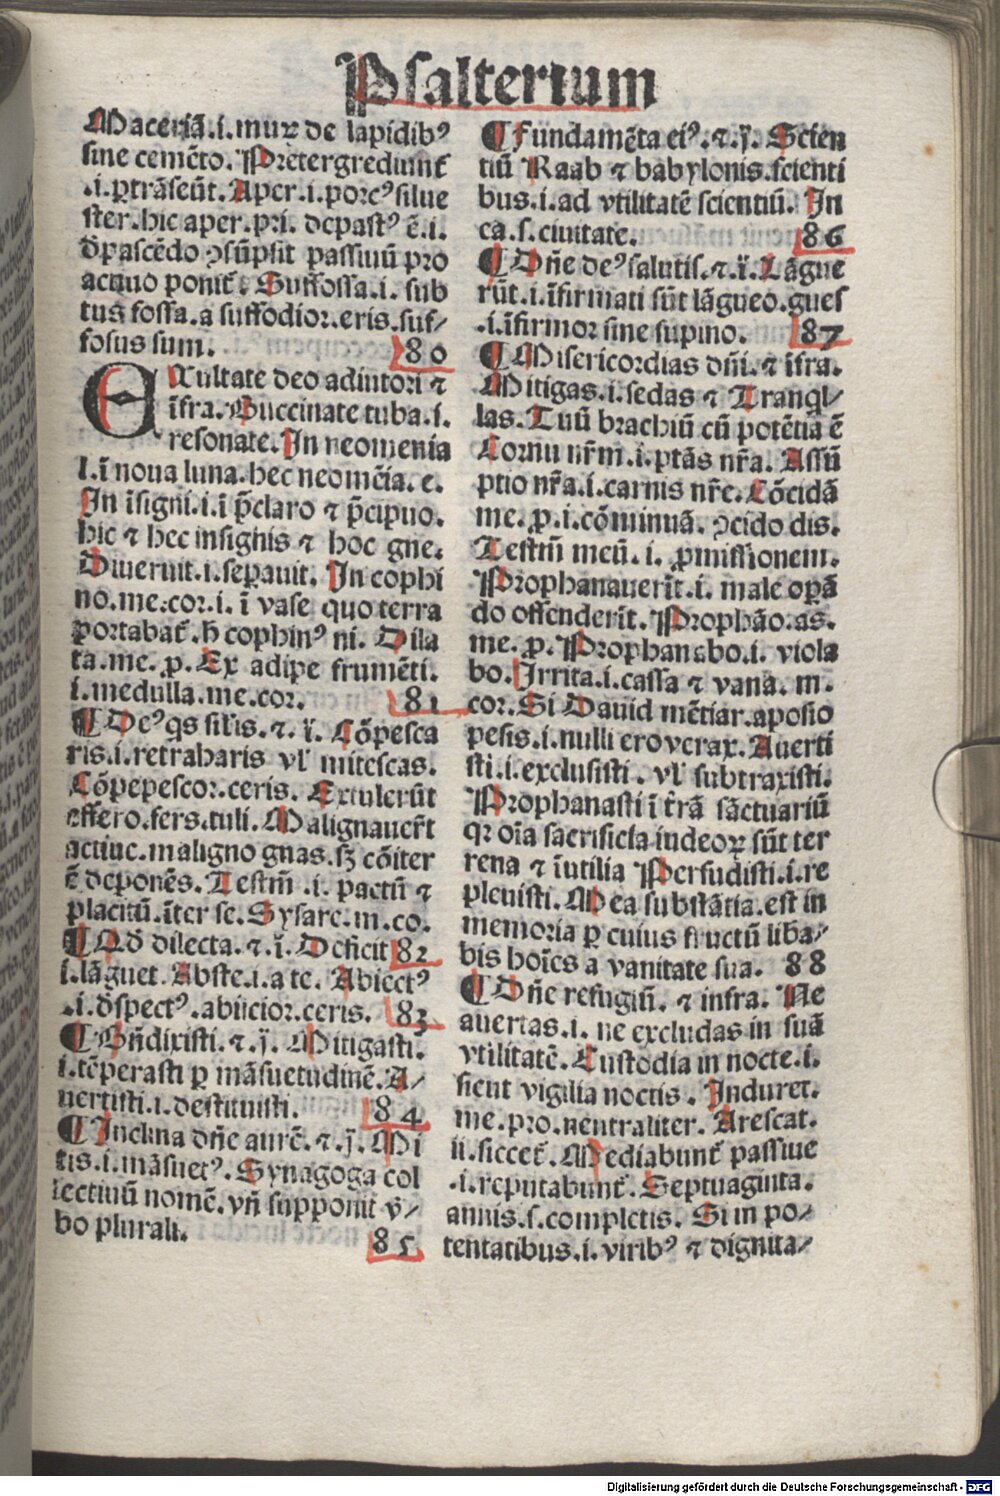 Psalterium
Maceriā.i.muꝝ de lapidibꝰ
sine cemēto. Pretergrediunt̄
.i.ꝑtrāseūt. Aper.i.porcꝰ silue
ster.hic aper.pri. depastꝰ ē.i.
d̄pascēdo ꝯsūpsit passiuū pro
actiuo ponit̄. Suffossa.i. sub
tus fossa.a suffodior.eris.suf/
fosus sum. 80
EXultate deo adiutori ⁊
īfra. Buccinate tuba.i.
resonate. In neomenia
i.ī noua luna.hec neomēia.e.
In īsigni.i.ī p̄claro ⁊ p̄cipuo.
hic ⁊ hec insignis ⁊ hoc gne.
Diuertit.i.seꝑauit. In cophi
no.me.cor.i. ī vase quo terra
ꝑportabat̄.h̄ cophinꝰ ni. Dila
ta.me.ꝓ. Ex adipe frumēti.
i.medulla.me.cor. 81
¶ Deꝰ qs sil'is.⁊.ī. Cōpesca
ris.i.retraharis vl' mitescas.
Cōpepescor.ceris. Extulerūt
effero.fers.tuli. Malignauer̄t
actiue.maligno gnas.sꝫ cōiter
ē deponēs. Testm̄ .i. pactū ⁊
placitū.īter se. Sysare.m.co.
¶ Qd̄ dilecta.⁊.ī. Deficit 82
i.lāguet. Abste.i.a te. Abiectꝰ
.i.d̄spectꝰ.abiicior.ceris. 83
¶ Bn̄dixisti.⁊.j. Mitigasti.
i.tēperasti ꝑ māsuetudinē. A/
uertisti.i.destituisti. 84
¶ Inclina dn̄e aurē.⁊.j. Mi
tis.i.māsuetꝰ. Synagoga col
lectiuū nomē.vn̄ supponit v̄/
bo plurali. 85
¶ Fundamēta eiꝰ.⁊.j. Scien
tiū Raab ⁊ babylonis.scienti
bus.i.ad vtilitatē scientiū. In
ea.s.ciuitate. 86
¶ Dn̄e deꝰ salutis.⁊.ī. Lāgue
rūt.i.īfirmati sūt lāgueo.gues
.i.īfirmor sine supino. 87
¶ Misericordias dn̄i.⁊ īfra.
Mitigas.i.sedas ⁊ Tranql/
las. Tuū brachiū cū potētia ē
Cornu nr̄m.i.ptās nr̄a. Assū
ptio nr̄a.i.carnis nr̄e. Cōcidā
me.ꝓ.i.cōminuā. ꝯcido dis.
Testm̄ meū.i. ꝓmissionem.
Prophanauerīt.i. male oꝑā
do offenderīt. Prophāo.as.
me.ꝓ. Prophanabo.i. viola
bo. Irrita.i.cassa ⁊ vana. m.
cor. Si Dauid mētiar.aposio
pesis.i.nulli ero verax. Auerti
sti.i.exclusisti. vl' subtraxisti.
Prophanasti ī t̄rā sāctuariū
qꝛ oīa sacrificia iudeoꝝ sūt ter
rena ⁊ īutilia Persudisti.i.re
pleuisti. Mea substātia.est in
memoria ꝑ cuius fructū liba/
bis hoīes a vanitate sua. 88
¶ Dn̄e refugiū. ⁊ infra. Ne
auertas.i. ne excludas in suā
vtilitatē. Custodia in nocte.i.
sicut vigilia noctis. Induret.
me.pro.neutraliter. Arescat.
ii.siccet̄. Mediabunt̄ passiue
.i.reputabunt̄. Septuaginta.
annis.s.completis. Si in po/
tentatibus.i.viribꝰ ⁊ dignita/
Digitalisierung gefördert durch die Deutsche Forschungsgemeinschaft - DFG